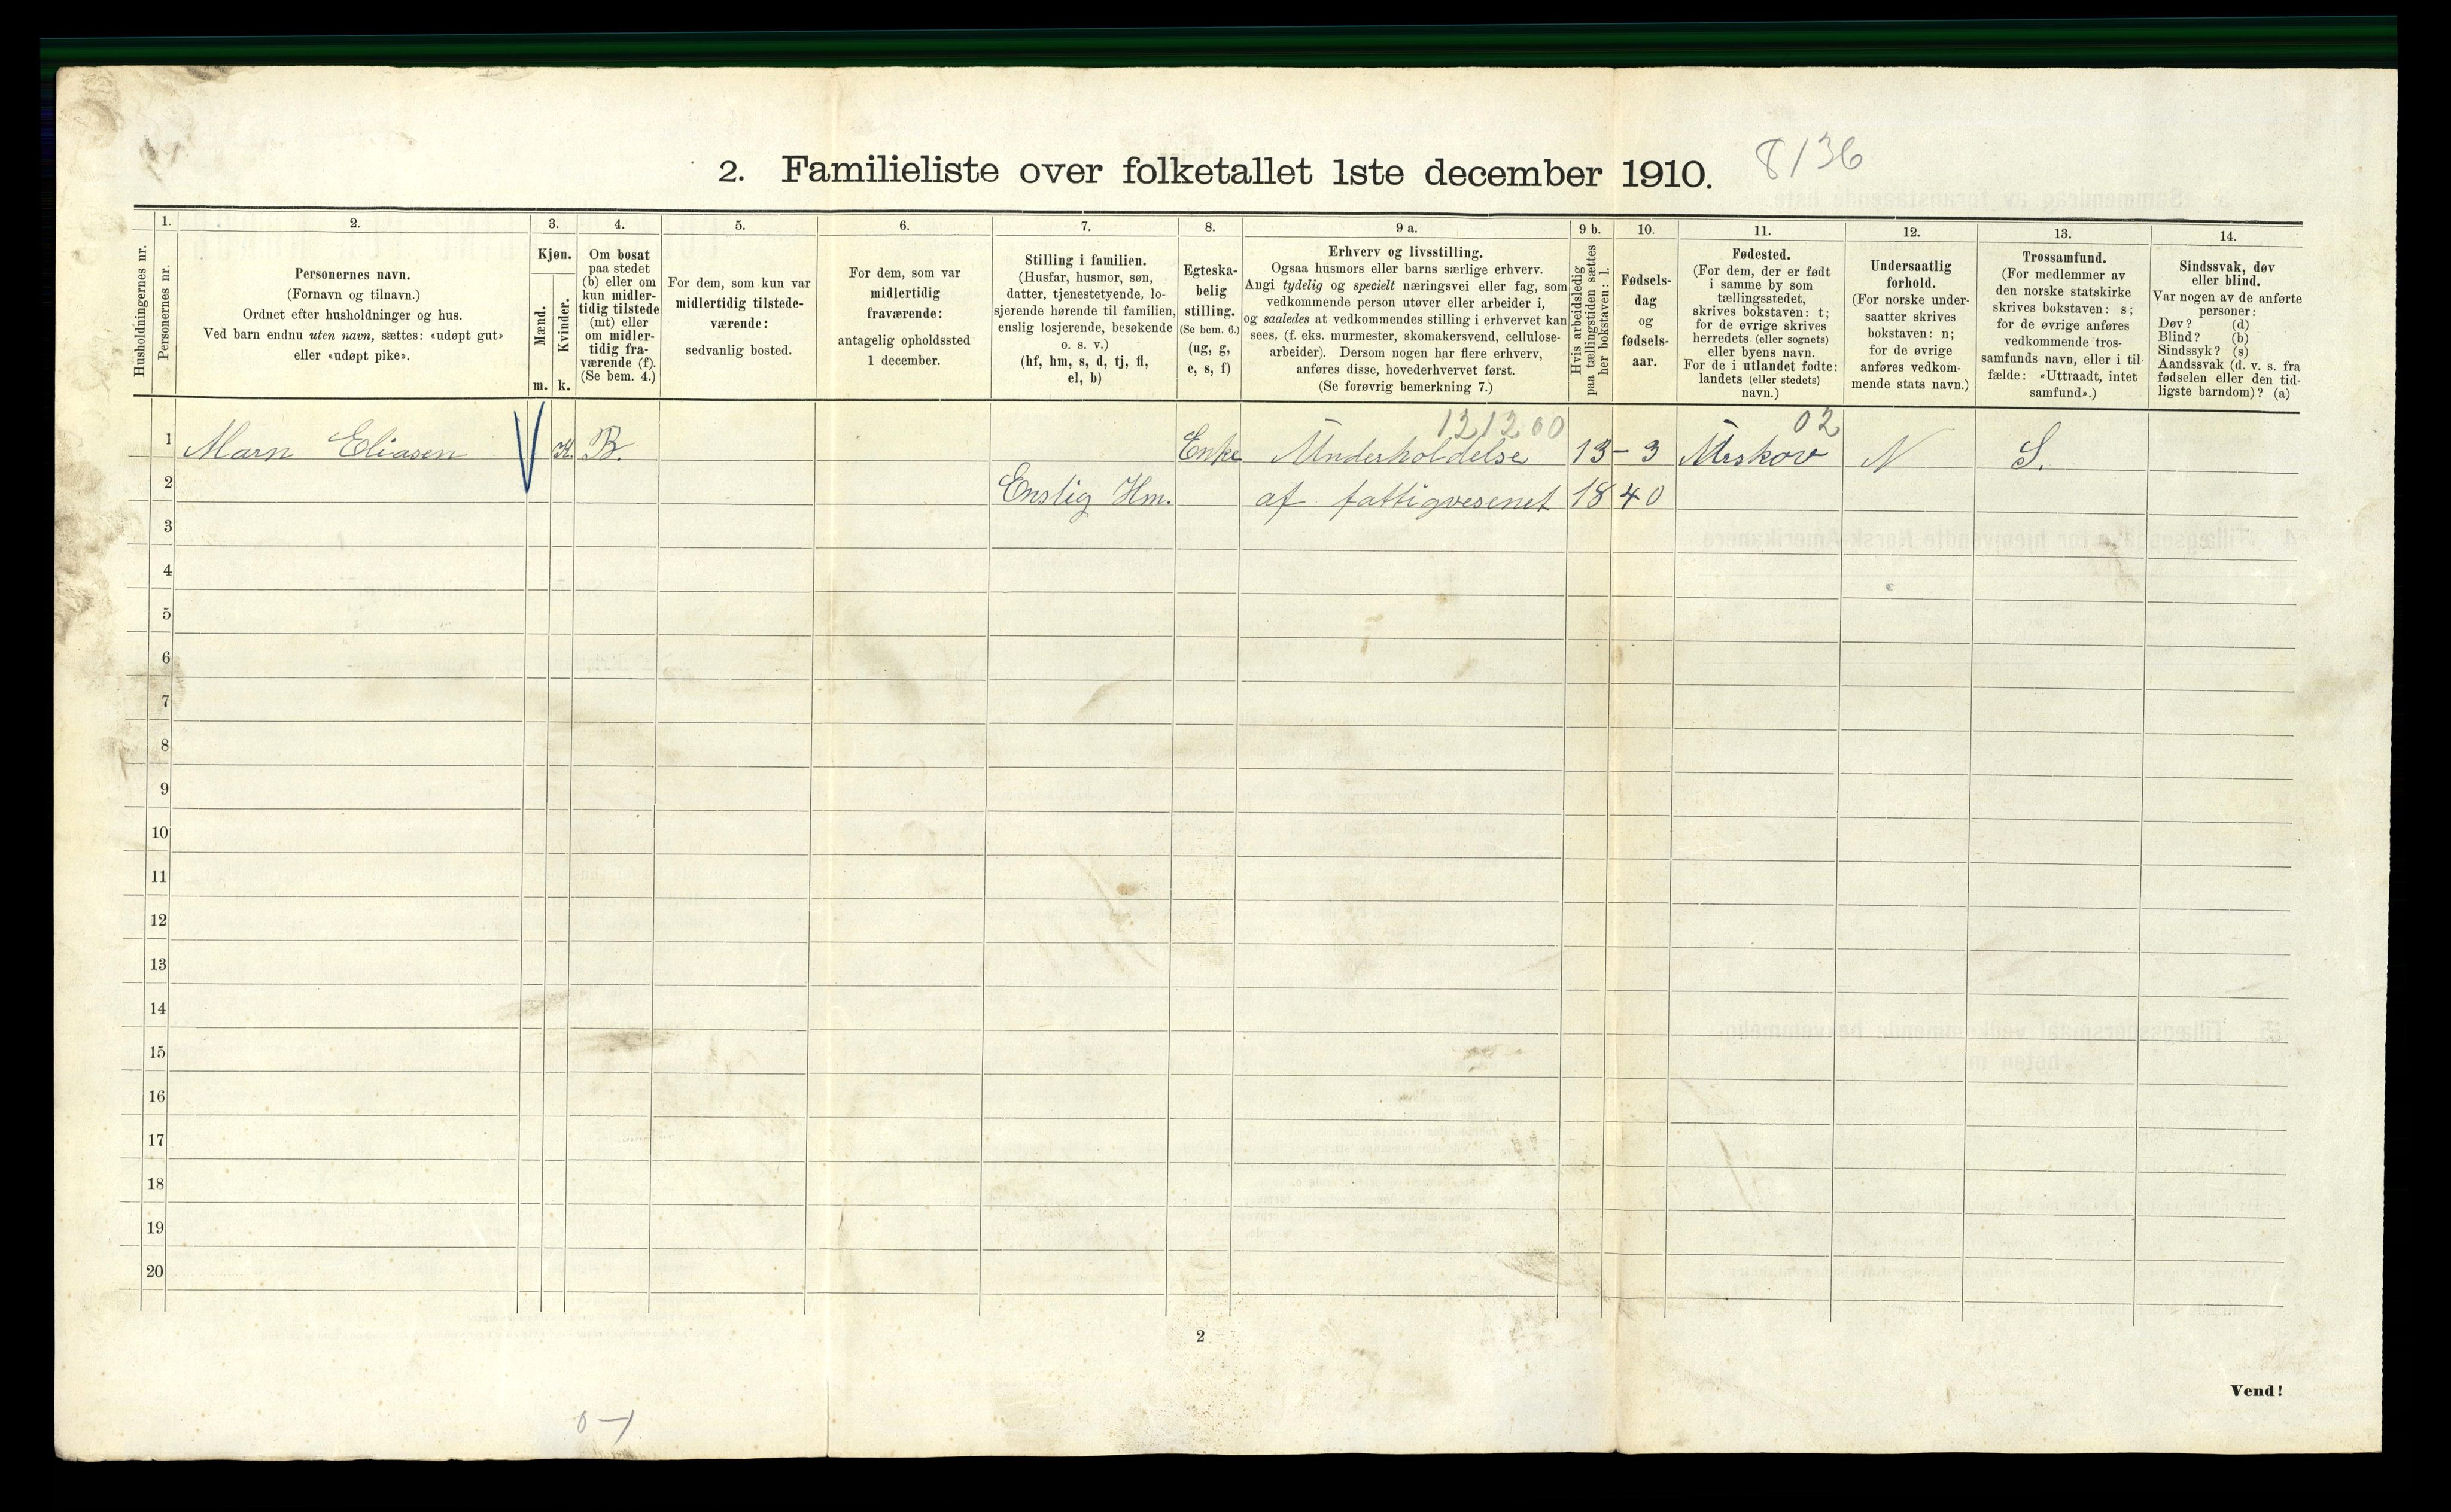 2. Familieliste over folketallet 1ste december 1910.
8136
Husholdningernes nr.
1.
Personernes nr.
2.
Personernes navn.
(Fornavn og tilnavn.)
Ordnet efter husholdninger og hus.
Ved barn endnu uten navn, sættes: «udøpt gut»
eller «udøpt pike».
3.
Kjøn.
Mænd.
m.
Kvinder.
k.
4.
Om bosat
paa stedet
(b) eller om
kun midler-
tidig tilstede
(mt) eller
om midler-
tidig fra-
værende (f).
(Se bem. 4.)
5.
For dem, som kun var
midlertidig tilstede-
værende:
sedvanlig bosted.
6.
For dem, som var
midlertidig
fraværende:
antagelig opholdssted
1 december.
7.
Stilling i familien.
(Husfar, husmor, søn,
datter, tjenestetyende, lo-
sjerende hørende til familien,
enslig losjerende, besøkende
o. s. v.)
(hf, hm, s, d, tj, fl,
el, b)
8.
Egteska-
belig
stilling.
(Se bem. 6.)
(ug, g,
e, s, f)
9 a.
Erhverv og livsstilling.
Ogsaa husmors eller barns særlige erhverv.
Angi tydelig og specielt næringsvei eller fag, som
vedkommende person utøver eller arbeider i,
og saaledes at vedkommendes stilling i erhvervet kan
sees, (f. eks. murmester, skomakersvend, cellulose-
arbeider). Dersom nogen har flere erhverv,
anføres disse, hovederhvervet først.
(Se forøvrig bemerkning 7.)
9 b.
Hvis arbeidsledig
paa tællingstiden sættes
her bokstaven: l.
10.
Fødsels-
dag
og
fødsels-
aar.
11.
Fødested.
(For dem, der er født
i samme by som
tællingsstedet,
skrives bokstaven: t;
for de øvrige skrives
herredets (eller sognets)
eller byens navn.
For de i utlandet fødte:
landets (eller stedets)
navn.)
12.
Undersaatlig
forhold.
(For norske under-
saatter skrives
bokstaven: n;
for de øvrige
anføres vedkom-
mende stats navn.)
13.
Trossamfund.
(For medlemmer av
den norske statskirke
skrives bokstaven: s;
for de øvrige anføres
vedkommende tros-
samfunds navn, eller i til-
fælde: «Uttraadt, intet
samfund».)
14.
Sindssvak, døv
eller blind.
Var nogen av de anførte
personer:
Døv? (d)
Blind? (b)
Sindssyk? (s)
Aandssvak (d. v. s. fra
fødselen eller den tid-
ligste barndom)? (a)
121200 02
1 Marn Eliasen K. B. Enke Underholdelse 13-3 N S.
2 Enslig Hm. af fattigvesenet 1840
3
4
5
6
7
8
9
10
11
12
13
14
15
16
17
18
19
20
2
Vend!